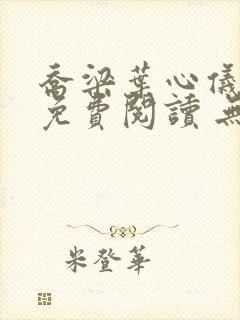 喬梁葉心儀
免費閱讀 無
米登華